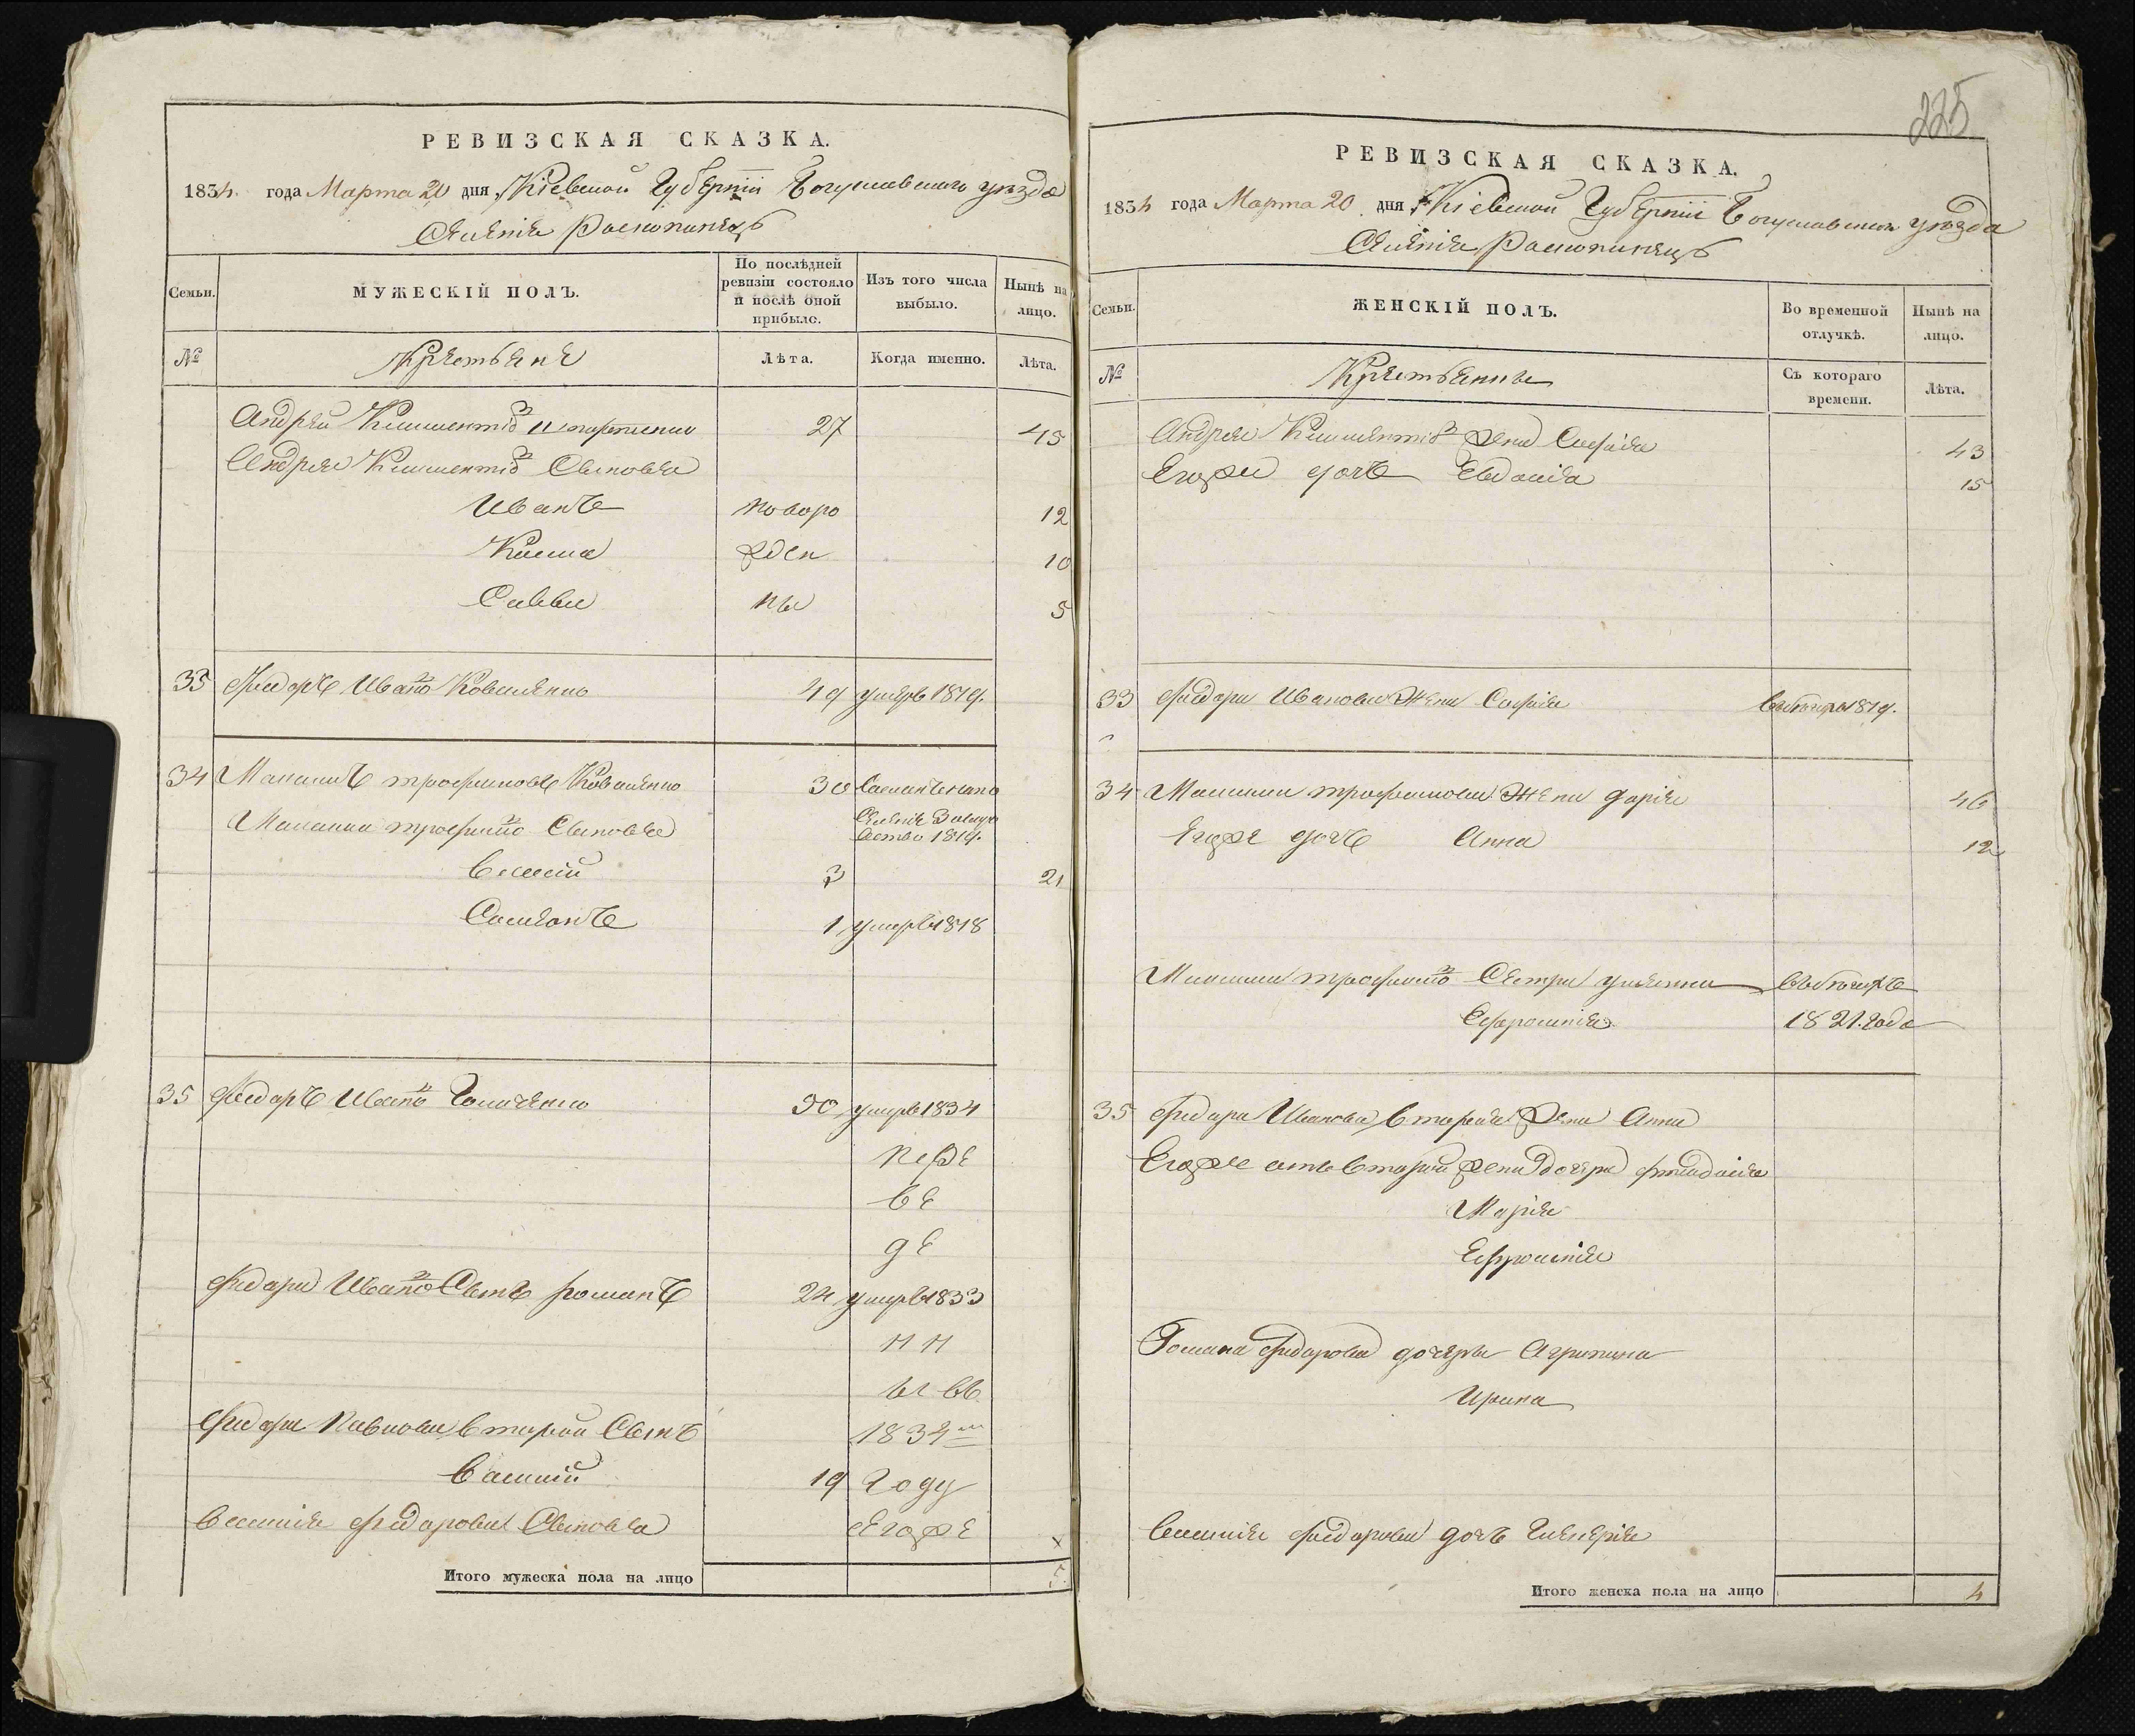 РЕВИЗСКАЯ СКАЗКА.
1834 года Марта 20 дня Кіевской Губерніи Богуславского уезда
Селенія Раскопинецъ
Семьи.
МУЖЕСКІЙ ПОЛЪ.
По послѣдней ревизіи состояло и послѣ оной прибыло.
Изъ того числа выбыло.
Нынѣ на лицо.
№
Крестьяне
Лѣта.
Когда именно.
Лѣта.
Андрей 27 45
Андрея Сыновья
Иванъ новоро 12
Козма жден 10
Савва ны 5
33 Федоръ Ивано Коваленко 49 умеръ 1819.
34 Максимъ Трофимовъ Коваленко 30
Максима Трофимо Сыновья 1819.
Василій 3 21
Симеонъ 1 умеръ 1818
35 Федоръ Ивано 50 умеръ 1834
пере
ве
де
Федора Ивано Сынъ Романъ 24 умеръ 1833
нн
ы въ
Федора второй Сынъ 1834
Василій 19 году
Василія Федорова Сыновья
Итого мужеска пола на лицо 5
225
РЕВИЗСКАЯ СКАЗКА.
1834 года Марта 20 дня Кіевской Губерніи Богуславского уезда
Селенія Раскопинецъ
Семьи.
ЖЕНСКІЙ ПОЛЪ.
Во временной отлучкѣ.
Нынѣ на лицо.
№
Крестьянки
Съ котораго времени.
Лѣта.
Андрея жена Софія 43
Егоже дочь Евдокія 15
33 Федора Иванова Жена Софія 1819.
34 Максима Трофимова Жена Дарія 46
Егоже дочь Анна 12
Максима Трофимо Сестра Ульянна
Ефросинія 1821. года
35 Федора Иванова вторая жена Анна
Егоже отъ второй жены дочери Феодосія
Марія
Ефросинія
Романа Федорова дочери Агрипина
Ирина
Василія Федорова дочь Гликерія
Итого женска пола на лицо 4